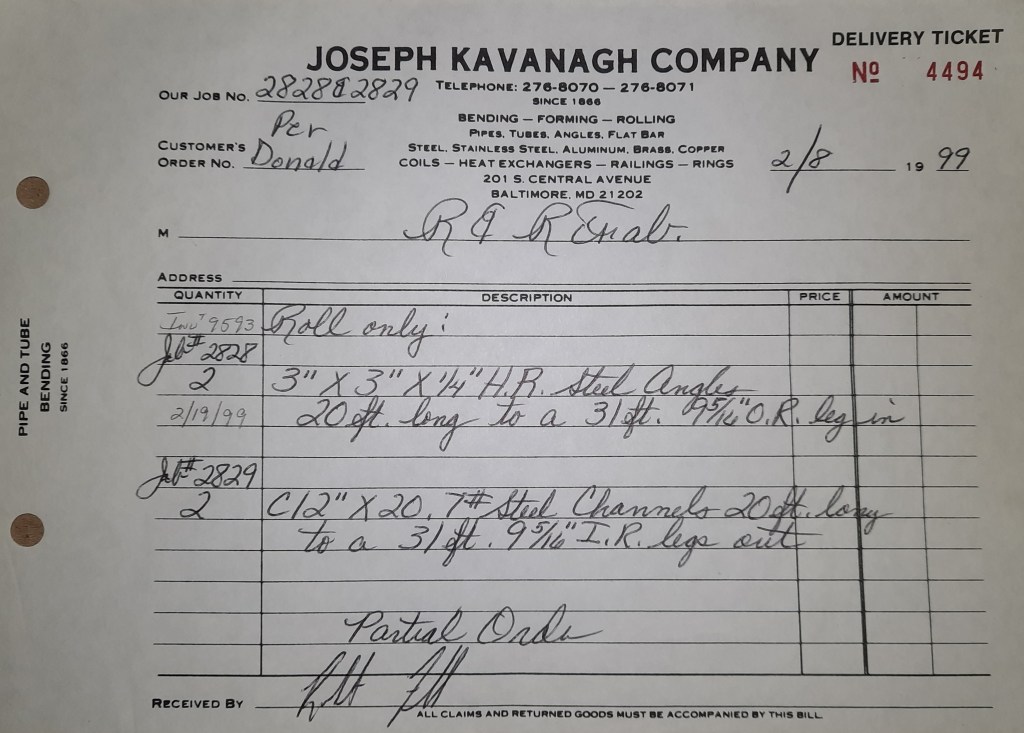 DELIVERY TICKET
JOSEPH KAVANAGH COMPANY
Nº 4494
OUR JOB NO. 2828 & 2829
TELEPHONE: 276-8070 — 276-8071
SINCE 1866
BENDING — FORMING — ROLLING
PIPES, TUBES, ANGLES, FLAT BAR
CUSTOMER'S ORDER NO. Per Donald
STEEL, STAINLESS STEEL, ALUMINUM, BRASS, COPPER
COILS — HEAT EXCHANGERS — RAILINGS — RINGS
2/8 1999
201 S. CENTRAL AVENUE
BALTIMORE, MD 21202
M R & R Fab.
ADDRESS
QUANTITY DESCRIPTION PRICE AMOUNT
Inv 9593 Roll only:
Job # 2828
2 3" X 3" X 1/4" H.R. Steel Angles
2/19/99 20 ft. long to a 31 ft. 9 5/16" O.R. leg in
Job # 2829
2 C12" X 20.7# Steel Channels 20 ft. long
to a 31 ft. 9 5/16" I.R. legs out
Partial Order
RECEIVED BY
ALL CLAIMS AND RETURNED GOODS MUST BE ACCOMPANIED BY THIS BILL
PIPE AND TUBE
BENDING
SINCE 1866